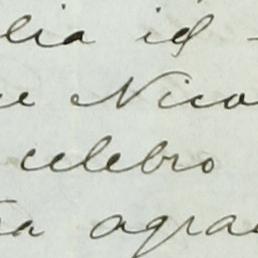 lia id
ce Nico
celebro
ta agrad